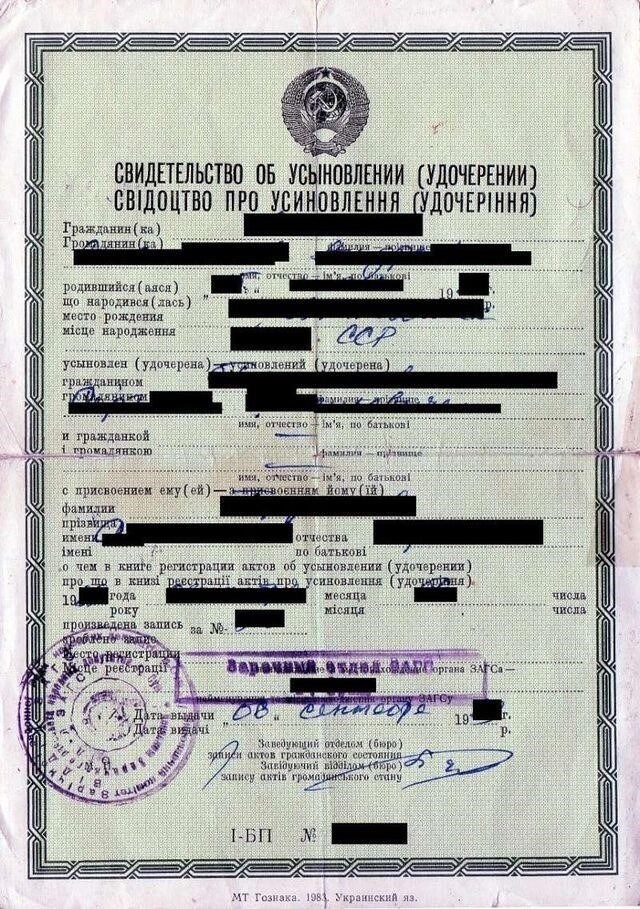 СВИДЕТЕЛЬСТВО ОБ УСЫНОВЛЕНИИ (УДОЧЕРЕНИИ)
СВІДОЦТВО ПРО УСИНОВЛЕННЯ (УДОЧЕРІННЯ)
Гражданин(ка)
Громадянин(ка)
фамилия — прізвище
имя, отчество — ім'я, по батькові
родившийся(аяся) " " 19 г.
що народився(лась) р.
место рождения
місце народження ССР
усыновлен (удочерена) — усиновлений (удочерена)
гражданином
громадянином фамилия — прізвище
имя, отчество — ім'я, по батькові
и гражданкой —
і громадянкою фамилия — прізвище
—
имя, отчество — ім'я, по батькові
с присвоением ему(ей) — з присвоєнням йому(їй)
фамилии
прізвища
имени отчества
імені по батькові
о чем в книге регистрации актов об усыновлении (удочерении)
про що в книзі реєстрації актів про усиновлення (удочеріння)
19 года месяца числа
року місяця числа
произведена запись за №
зроблено запис
Место регистрации отдел ЗАГС
Місце реєстрації нахождение органа ЗАГСа —
органу ЗАГСу
Дата выдачи " 08 " сентября 19 г.
Дата видачі р.
Заведующий отделом (бюро)
записи актов гражданского состояния
Завідуючий відділом (бюро)
запису актів громадянського стану
І-БП №
МТ Гознака. 1983. Украинский яз.